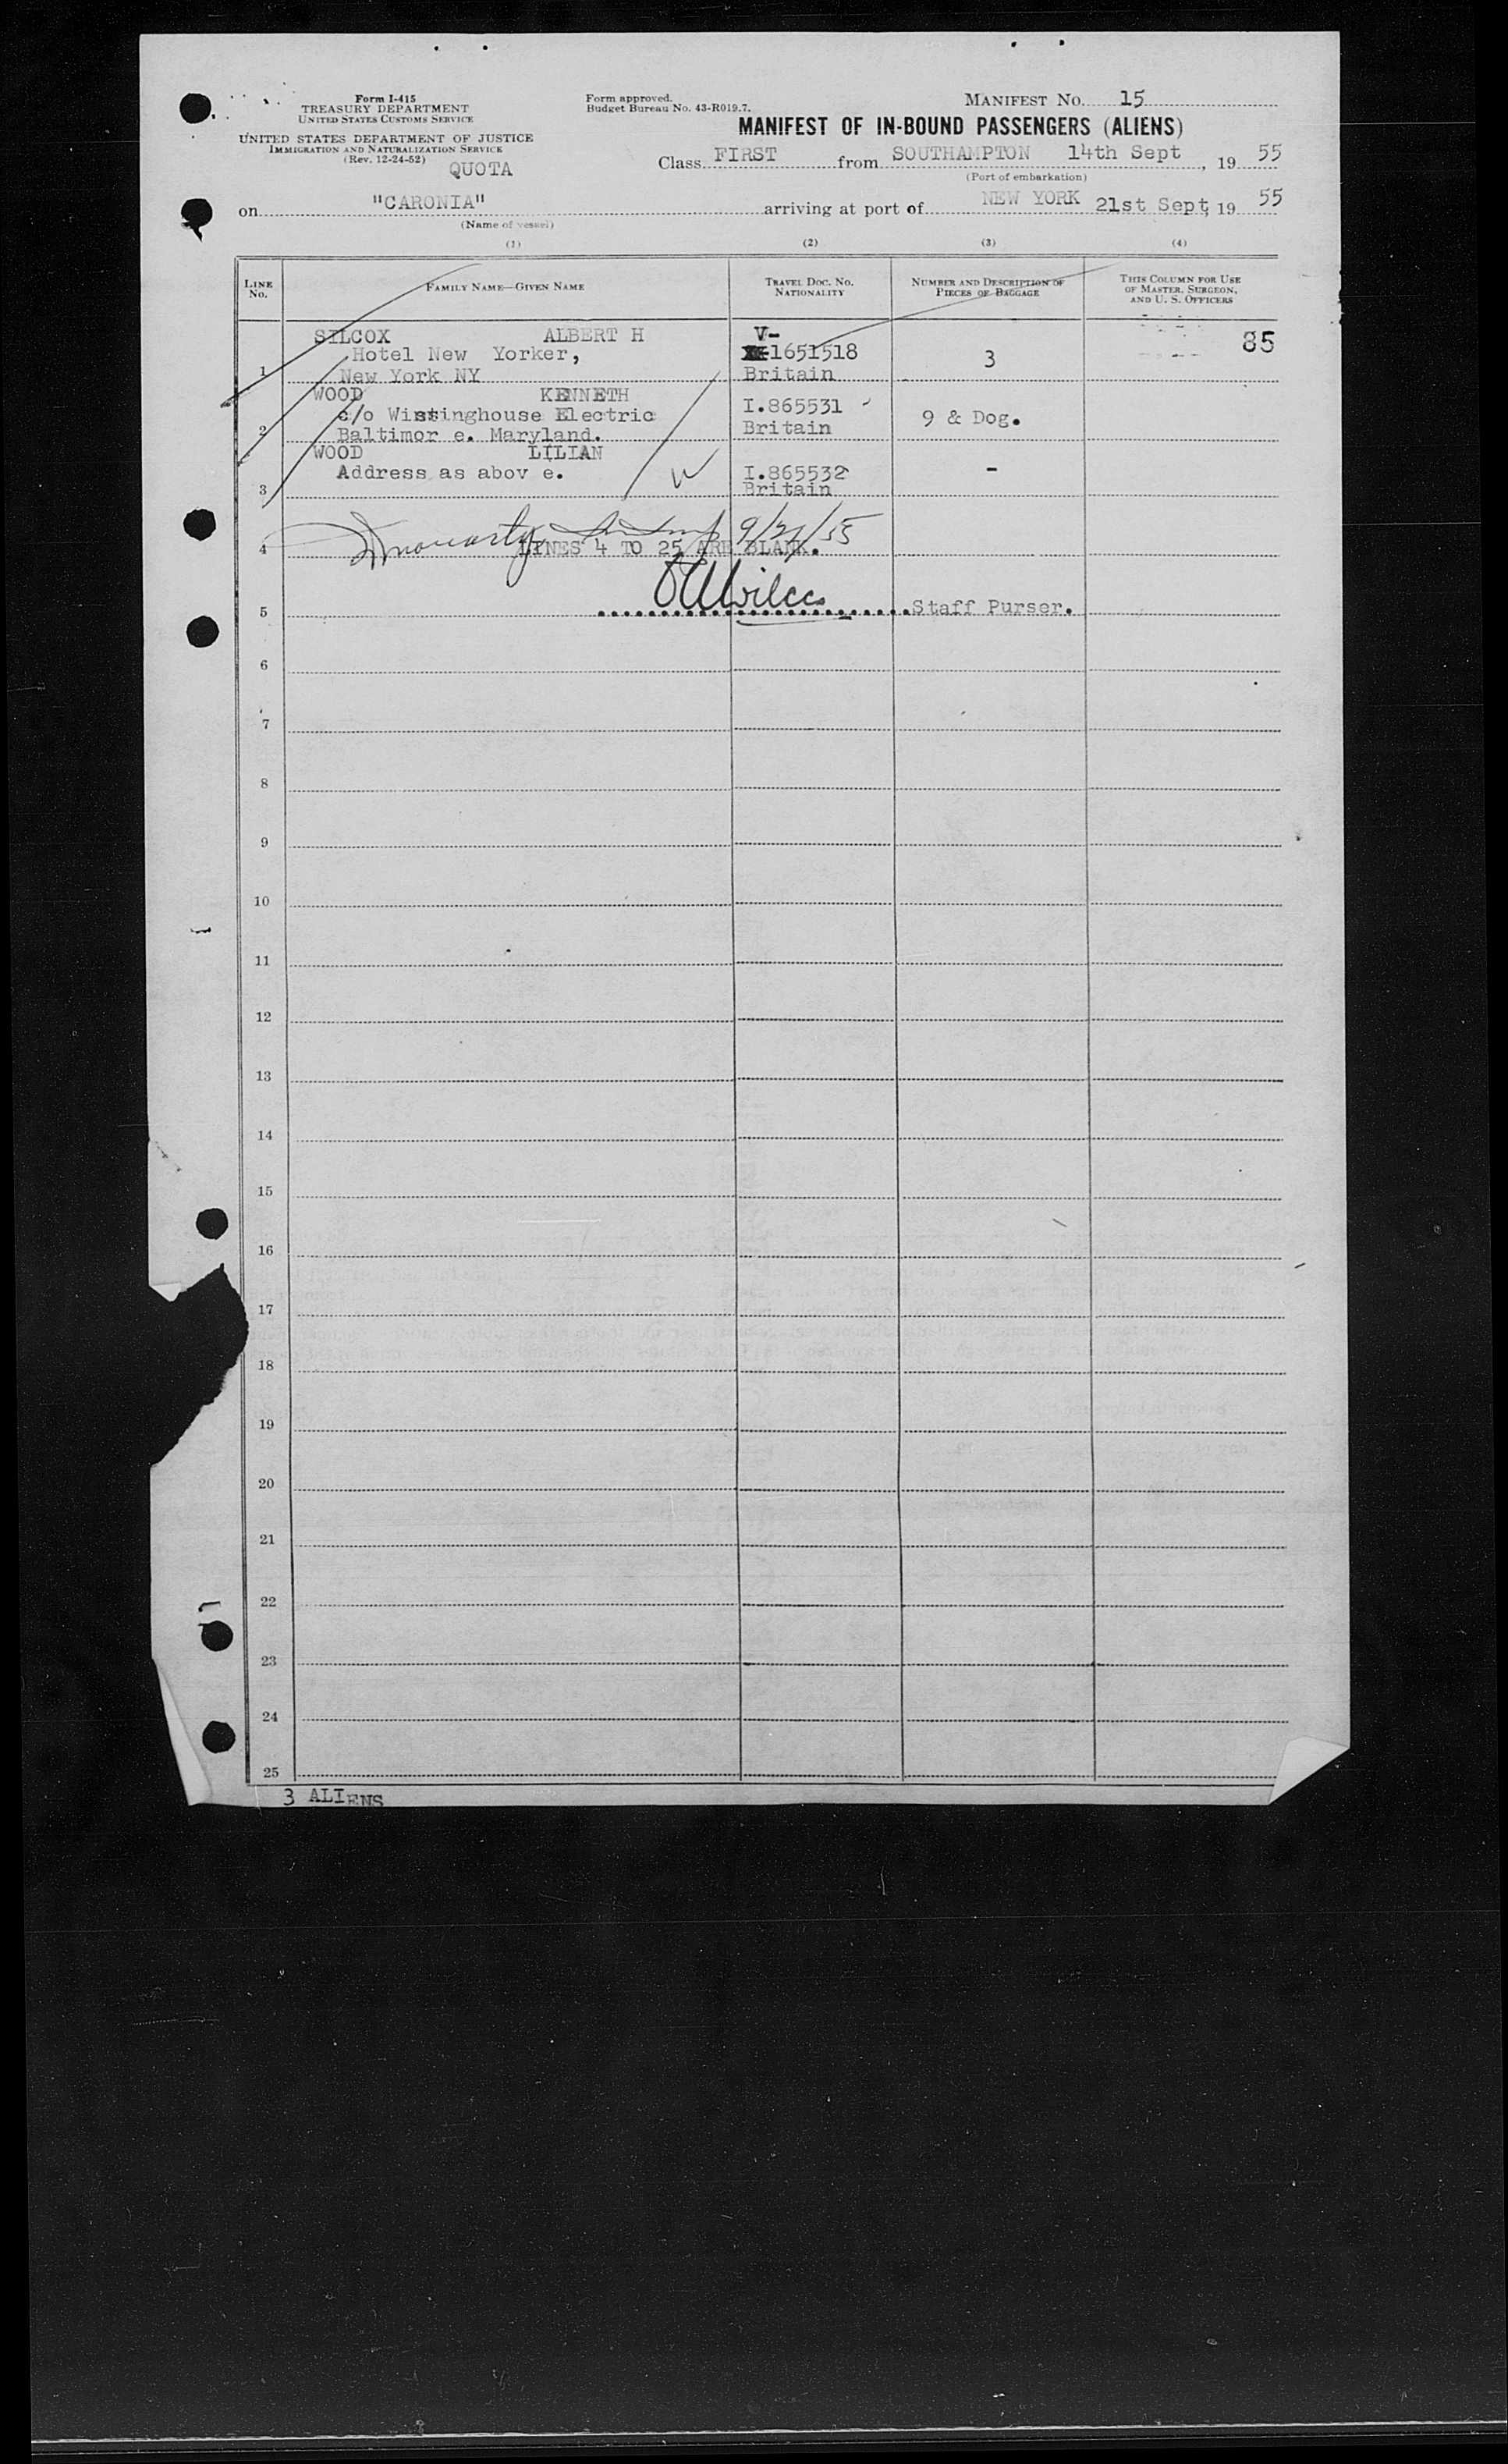 Form I-415
TREASURY DEPARTMENT
UNITED STATES CUSTOMS SERVICE
UNITED STATES DEPARTMENT OF JUSTICE
IMMIGRATION AND NATURALIZATION SERVICE
(Rev. 12-24-52)
QUOTA
Form approved.
Budget Bureau No. 43-R019.7.
MANIFEST NO. 15
MANIFEST OF IN-BOUND PASSENGERS (ALIENS)
Class FIRST from SOUTHAMPTON 14th Sept, 19 55
(Port of embarkation)
on "CARONIA" arriving at port of NEW YORK 21st Sept, 19 55
(Name of vessel)
(1) (2) (3) (4)
LINE No. FAMILY NAME—GIVEN NAME TRAVEL DOC. NO. NATIONALITY NUMBER AND DESCRIPTION OF PIECES OF BAGGAGE THIS COLUMN FOR USE OF MASTER, SURGEON, AND U. S. OFFICERS
SILCOX ALBERT H V- 85
Hotel New Yorker, 1651518 3
1 New York NY Britain
WOOD KENNETH
c/o Winstinghouse Electric I.865531 9 & Dog.
2 Baltimor e. Maryland. Britain
WOOD LILIAN
Address as abov e. I.865532 -
3 Britain
9/21/55
4 LINES 4 TO 25 ARE BLANK.
5 Staff Purser.
6
7
8
9
10
11
12
13
14
15
16
17
18
19
20
21
22
23
24
25
3 ALIENS